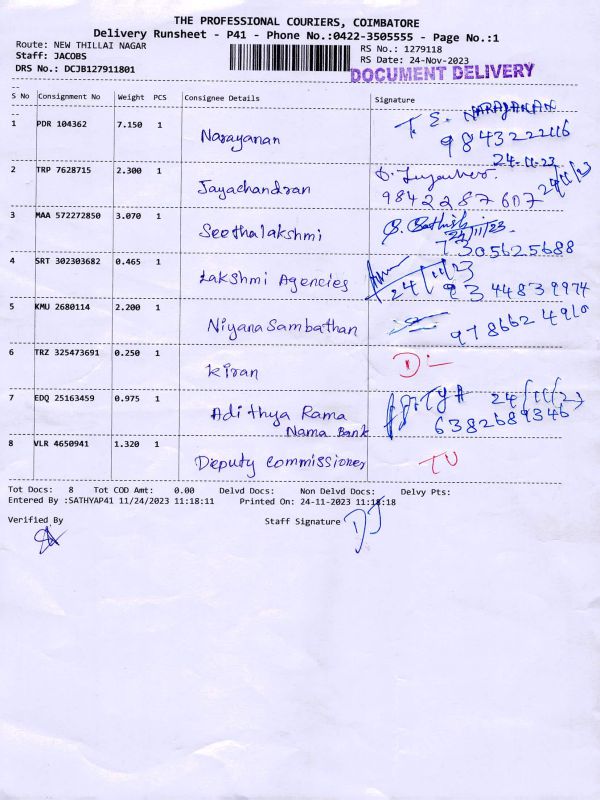 THE PROFESSIONAL COURIERS, COIMBATORE
Delivery Runsheet - P41 - Phone No.:0422-3505555 - Page No.:1
Route: NEW THILLAI NAGAR
RS No.: 1279118
Staff: JACOBS
RS Date: 24-Nov-2023
DRS No.: DCJB127911801
DOCUMENT DELIVERY
S No Consignment No Weight PCS Consignee Details Signature
1 PDR 104362 7.150 1 Narayanan T. E. NARAYANAN
24.11.23
2 TRP 7628715 2.300 1 Jayachandran
9842287607 24/11/23
3 MAA 572272850 3.070 1 Seethalakshmi
7305625688
4 SRT 302303682 0.465 1 Lakshmi Agencies 24/11/23
9344839974
5 KMU 2680114 2.200 1 Niyana Sambathan
6 TRZ 325473691 0.250 1 Kiran DL
7 EDQ 25163459 0.975 1 Adithya Rama
Nama Bank 6382689346
8 VLR 4650941 1.320 1 Deputy Commissioner
Tot Docs: 8 Tot COD Amt: 0.00 Delvd Docs: Non Delvd Docs: Delvy Pts:
Entered By :SATHYAP41 11/24/2023 11:18:11 Printed On: 24-11-2023 11:18:18
Verified By Staff Signature DJ